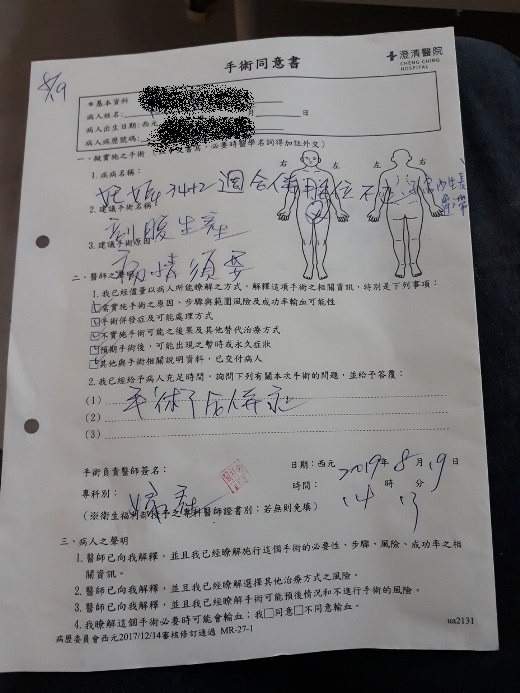 8/19
手術同意書
澄清醫院
CHENG CHING
HOSPITAL
＊基本資料
病人姓名：
月 日
病人出生日期：西元
病人病歷號碼：
一、擬實施之手術 必要時醫學名詞得加註外文）
右 左 左 右
1.疾病名稱：
妊娠34+2週合併胎位不
2.建議手術名稱：
剖腹生產
3.建議手術原因：
病情須要
二、醫師之聲明
1.我已經儘量以病人所能瞭解之方式，解釋這項手術之相關資訊，特別是下列事項：
需實施手術之原因、步驟與範圍風險及成功率輸血可能性
手術併發症及可能處理方式
不實施手術可能之後果及其他替代治療方式
預期手術後，可能出現之暫時或永久症狀
其他與手術相關說明資料，已交付病人
2.我已經給予病人充足時間，詢問下列有關本次手術的問題，並給予答覆：
（1）
手術
（2）
（3）
手術負責醫師簽名：
日期：西元 2019年 8月 19日
專科別：
婦產
時間： 時 分
14 13
（※衛生福利部授予之專科醫師證書別；若無則免填）
三、病人之聲明
1.醫師已向我解釋，並且我已經瞭解施行這個手術的必要性、步驟、風險、成功率之相
關資訊。
2.醫師已向我解釋，並且我已經瞭解選擇其他治療方式之風險。
3.醫師已向我解釋，並且我已經瞭解手術可能預後情況和不進行手術的風險。
4.我瞭解這個手術必要時可能會輸血；我□同意□不同意輸血。
病歷委員會西元2017/12/14審核修訂通過 MR-27-1
ua2131